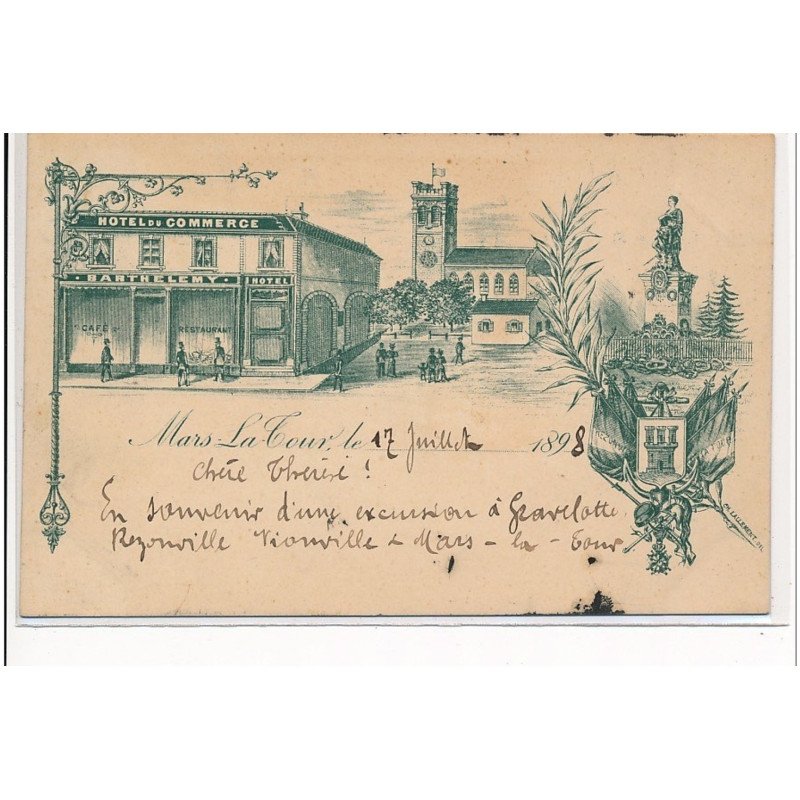 HOTEL DU COMMERCE
BARTHELEMY HOTEL
CAFÉ RESTAURANT
Mars La Tour, le 17 Juillet 1898
chère Thérèse !
En souvenir d'une excursion à Gravelotte
Rezonville Vionville & Mars - la - Tour
CH. LALLEMENT